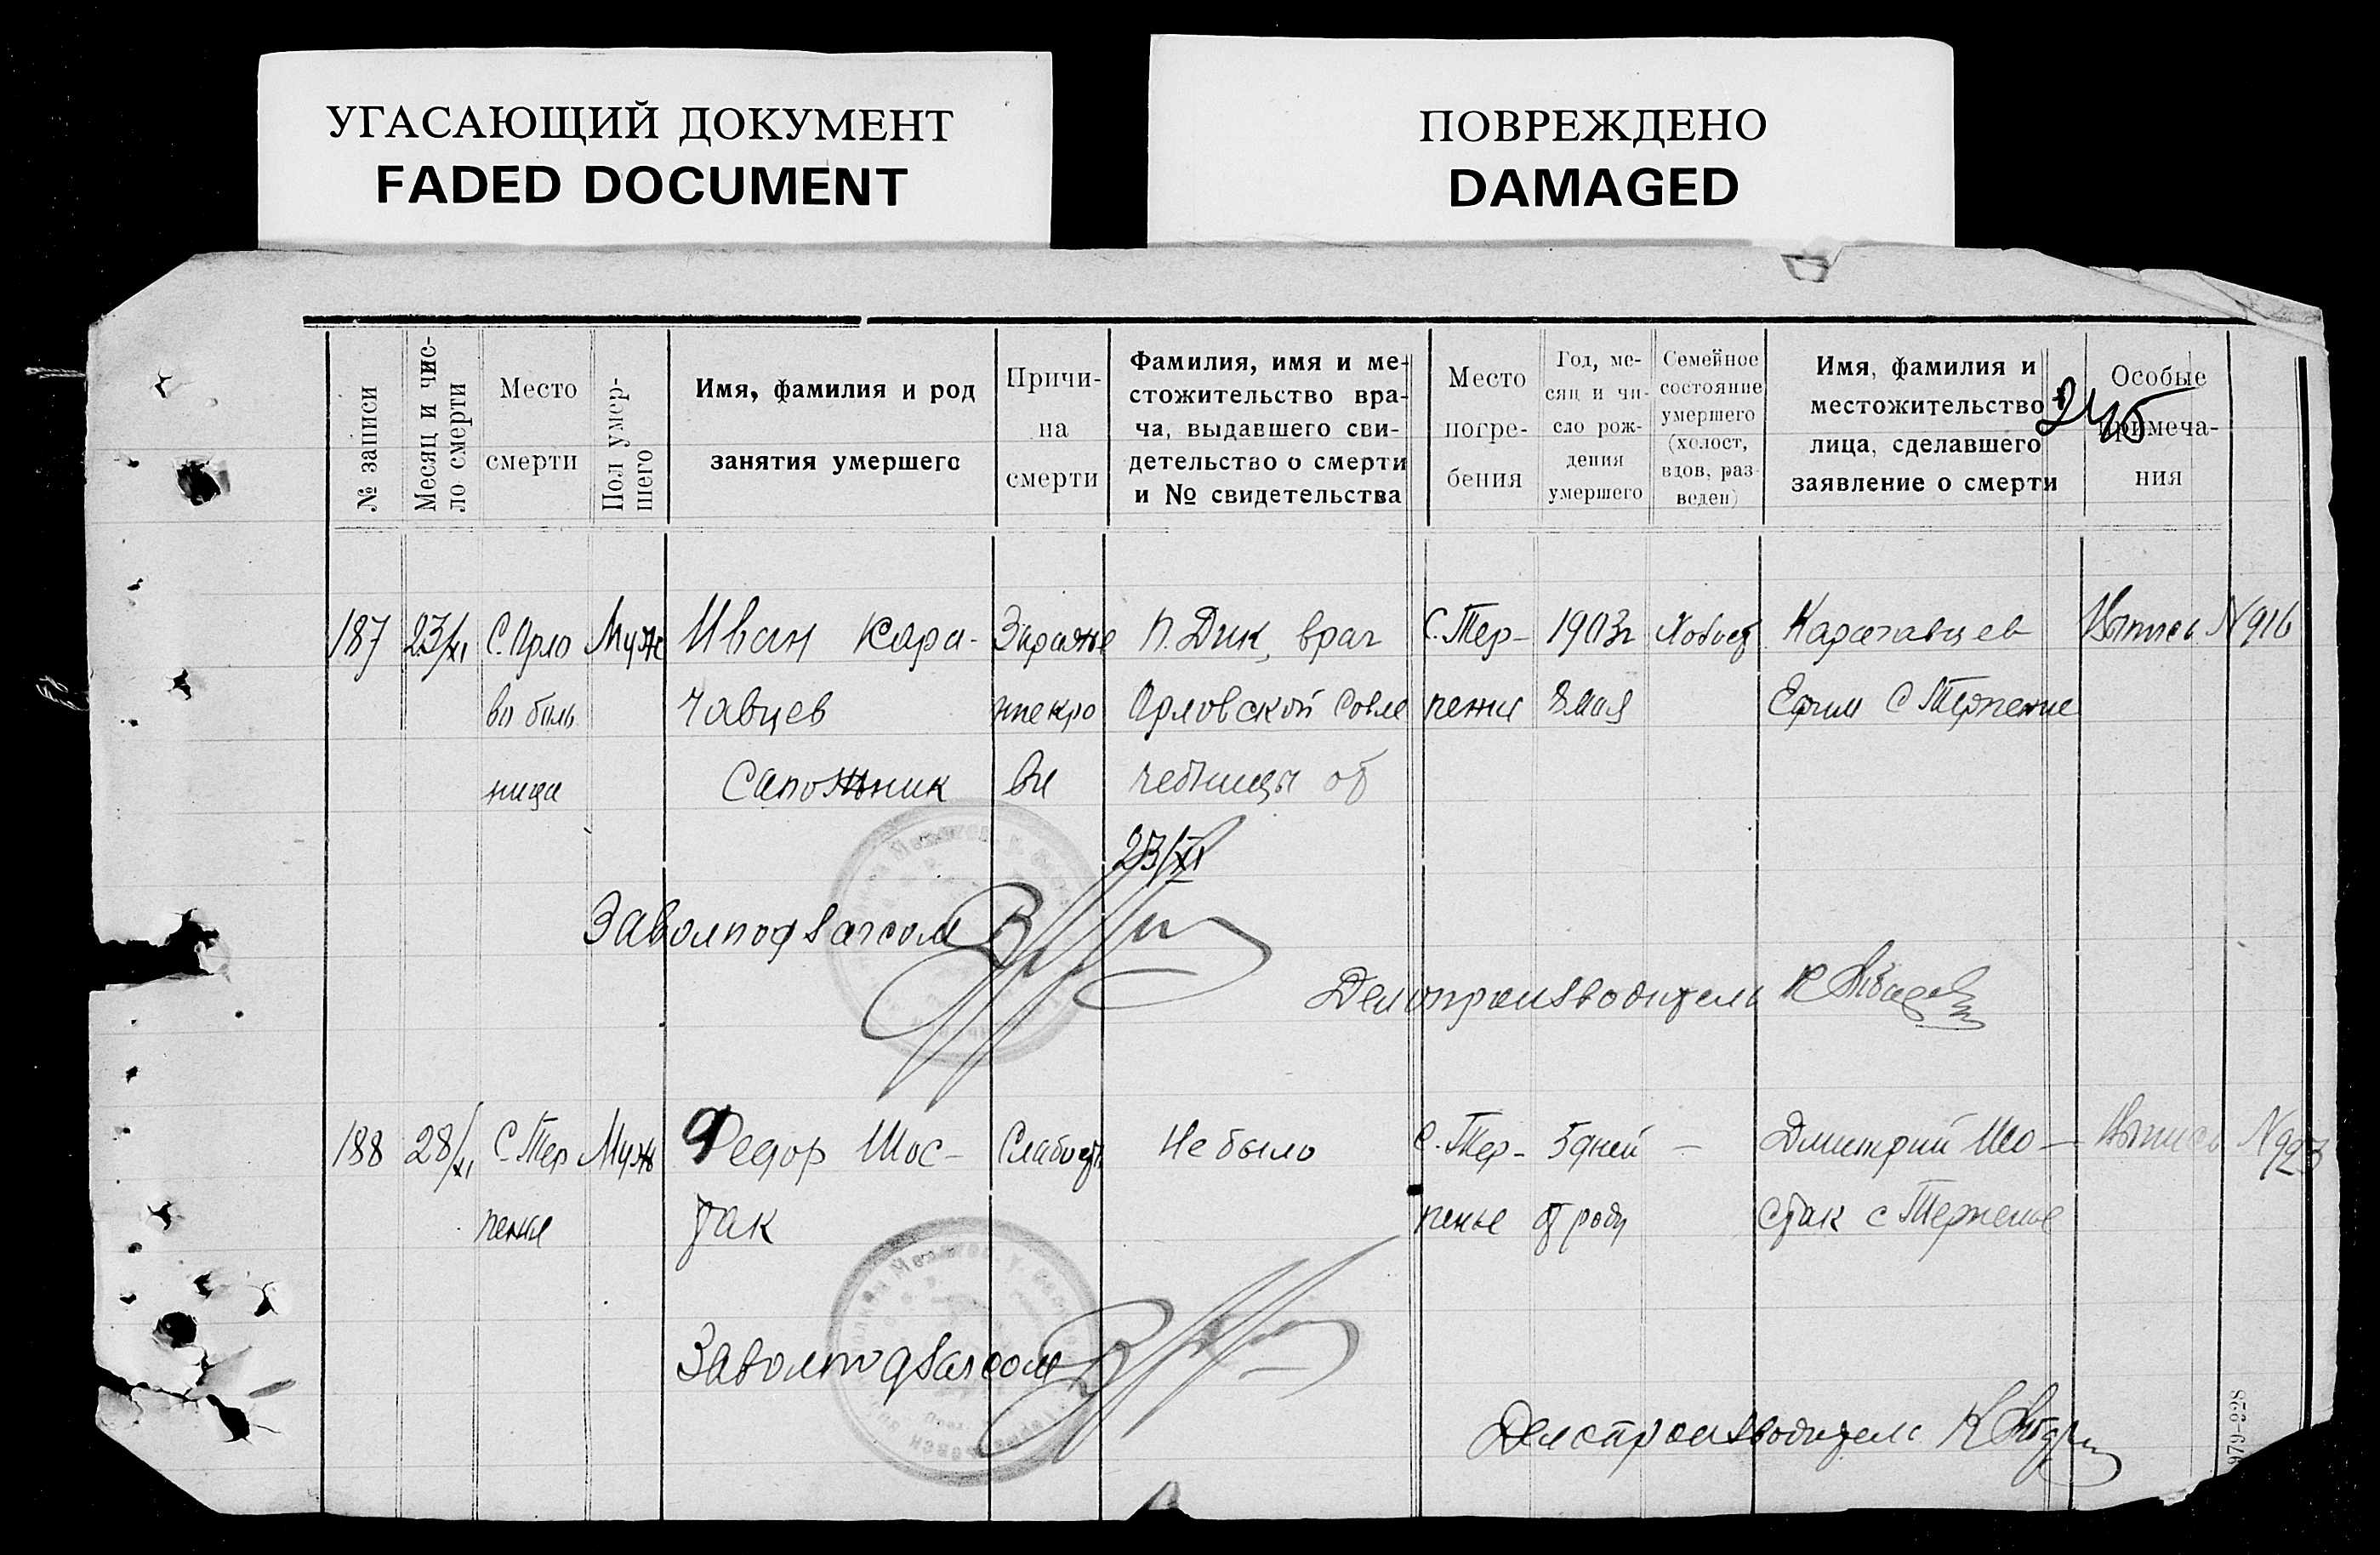 УГАСАЮЩИЙ ДОКУМЕНТ
FADED DOCUMENT
ПОВРЕЖДЕНО
DAMAGED
№ записи
Месяц и чис-
ло смерти
Место
смерти
Пол умер-
шего
Имя, фамилия и род
занятия умершего
Причи-
на
смерти
Фамилия, имя и ме-
стожительство вра-
ча, выдавшего сви-
детельство о смерти
и № свидетельства
Место
погре-
бения
Год, ме-
сяц и чи-
сло рож-
дения
умершего
Семейное
состояние
умершего
(холост,
вдов, раз-
веден)
Имя, фамилия и
местожительство
лица, сделавшего
заявление о смерти
Особые
примеча-
ния
187
23/XI
С. Орло
во боль
ница
Муж
Иван Кара-
чавцев
Сапожник
Зараже
ние кро
ви
П. Дик, врач
Орловской
чебницы от
23/XI
С. Тер-
пение
1903г
8 мая
Холост
Карачавцев
Ефим С Терпение
Выпись N 916
Заволподзагсом
Делопроизводитель
188
28/XI
С. Тер
пение
Муж
Федор Шос-
так
Слабость
Не было
С. Тер-
пенье
5 дней
от роду
—
Дмитрий Шо-
стак с Терпенье
Выпись N 923
Заволподзагсом
Делопроизводитель
979-928